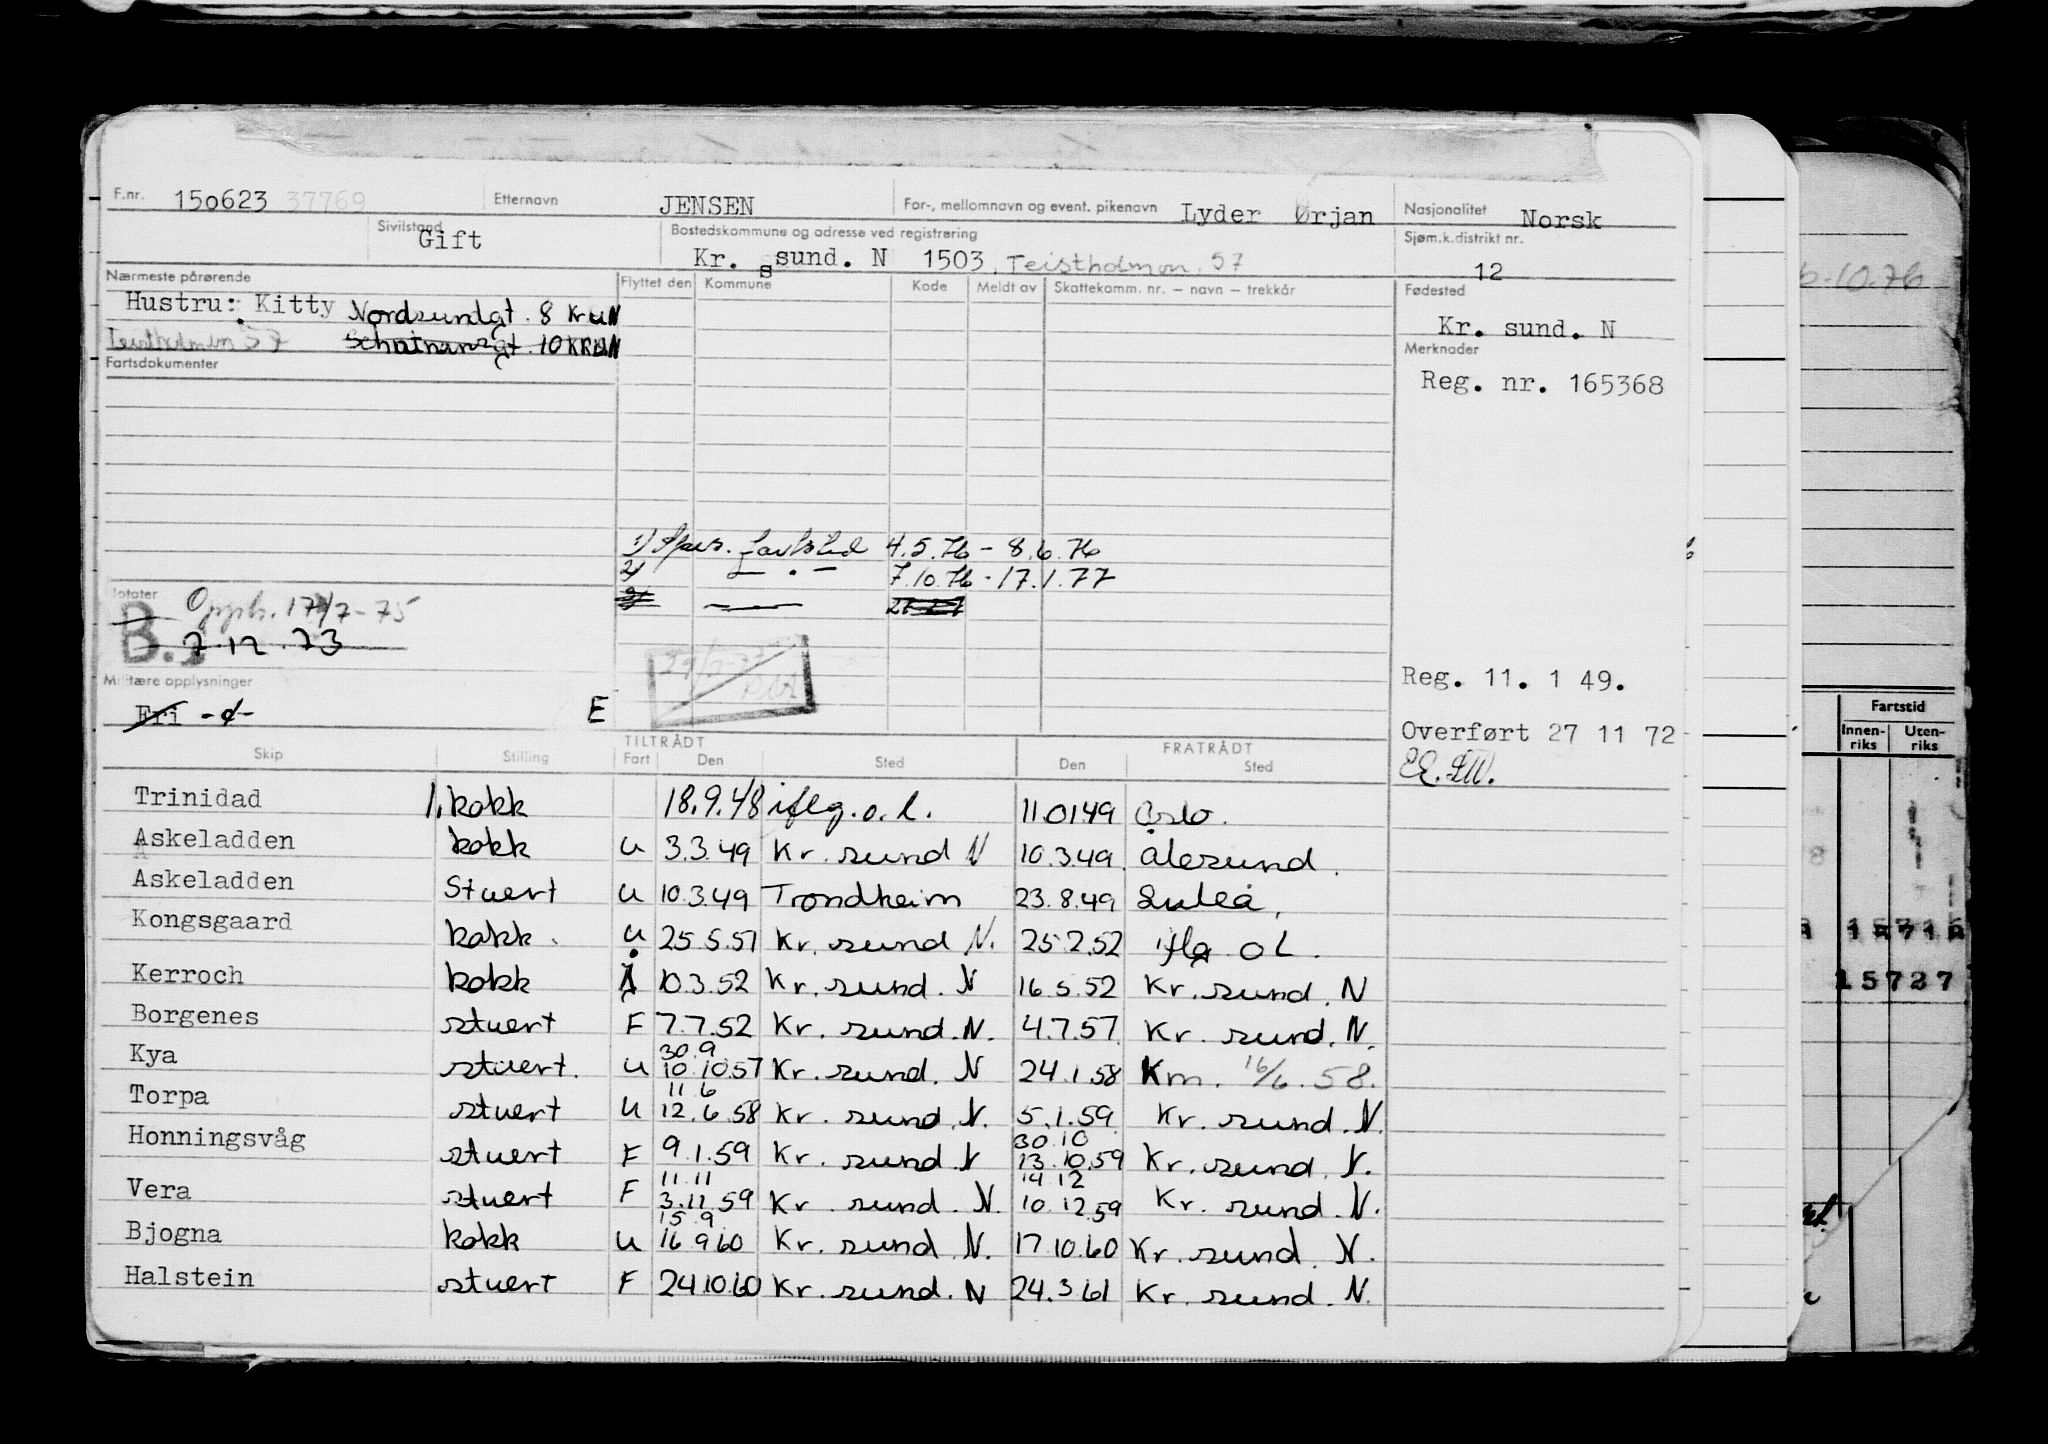 F.nr. 150623 37769 Etternavn JENSEN For-, mellomnavn og event. pikenavn Lyder Ørjan Nasjonalitet Norsk
Sivilstand Gift Bostedskommune og adresse ved registrering Kr. ssund. N 1503. Teistholmen. 57 Sjøm.k.distrikt nr. 12
Nærmeste pårørende Flyttet den Kommune Kode Meldt av Skattekomm. nr. – navn – trekkår Fødested
Hustru: Kitty Nordsundgt. 8 KrsuN Kr. sund. N
Teistholmen 57 gt. 10 KRSUN Merknader
Fartsdokumenter
Reg. nr. 165368
1) 4.5.76 - 8.6.76
2) — . — 7.10.76 - 17.1.77
Opph. 17/7-75
B. 7.12.73
Reg. 11. 1 49.
Militære opplysninger
Fri E
Overført 27 11 72
Skip Stilling TILTRÅDT Fart Den Sted FRATRÅDT Den Sted
Trinidad 1. kokk 18.9.48 iflg. o. l. 11.01.49 Oslo.
Askeladden kokk u 3.3.49 Kr. sund N 10.3.49 Ålesund.
Askeladden Stuert u 10.3.49 Trondheim 23.8.49 Luleå.
Kongsgaard kokk. u 25.5.51 Kr. sund N. 25.2.52 iflg o L.
Kerroch kokk 10.3.52 Kr. sund. N 16.5.52 Kr. sund. N
Borgenes stuert F 7.7.52 Kr. sund. N. 4.7.57 Kr. sund. N.
30.9
Kya stuert. u 10.10.57 Kr. sund. N 24.1.58 Km. 16/6.58.
11 6
Torpa stuert u 12.6.58 Kr. sund. N. 5.1.59 Kr. sund. N.
30.10
Honningsvåg stuert F 9.1.59 Kr. sund. N 13.10.59 Kr. sund. N.
11.11 14 12
Vera stuert F 3.11.59 Kr. sund. N. 10.12.59 Kr. sund. N.
15.9
Bjogna kokk u 16 9 60 Kr. sund. N. 17.10.60 Kr. sund. N.
Halstein stuert F 24.10.60 Kr. sund. N 24.3 61 Kr. sund. N.
10.76
Fartstid
Innen-riks Uten-riks
15727